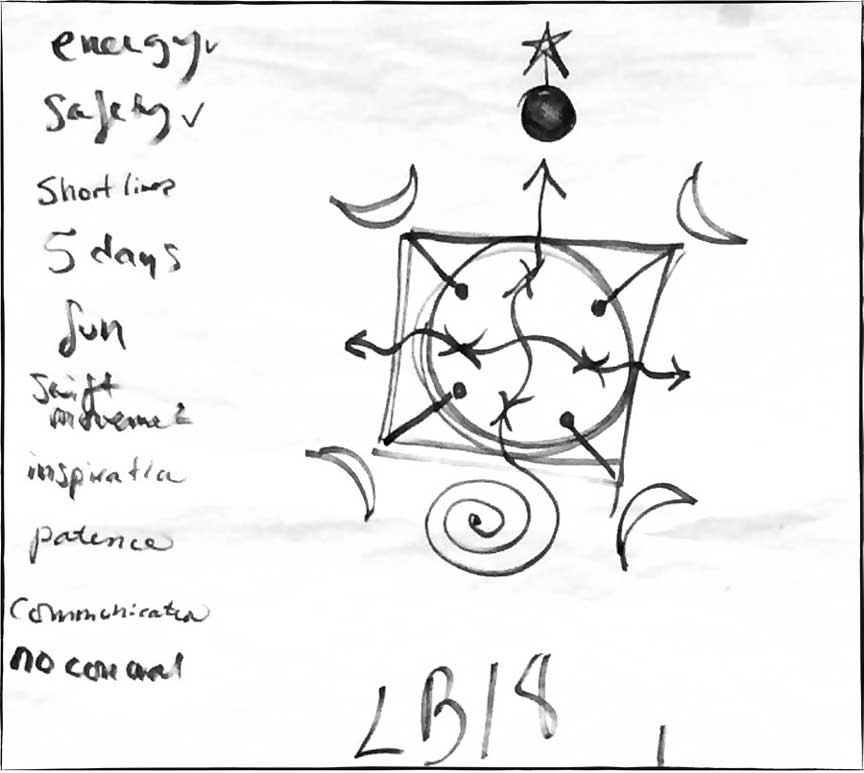 energy ✓
Safety ✓
Short lines
5 days
fun
Swift
movement
inspiration
patence
Communication
no
LB/18